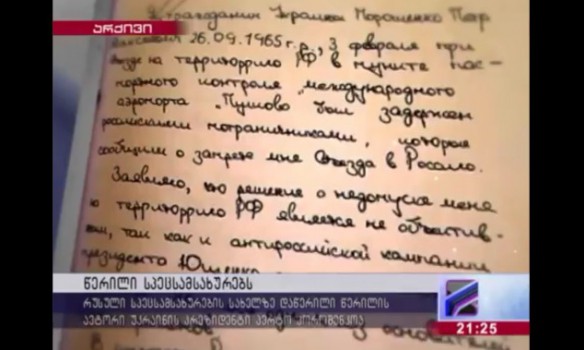 არქივი
гражданин Украины Порошенко Петр
26.09.1965 г.р., 3 февраля при
на территорию РФ в пункте пас-
портного контроля "международного
аэропорта "Пулково был задержан
российскими пограничниками, которые
сообщили о запрете мне въезда в Россию.
Заявляю, что решение о недопуске меня
на территорию РФ является не объектив-
ным, так как и антироссийской кампании
президента Ющенко
წერილი სპეცსამსახურებს
რუსული სპეცსამსახურების სახელზე დაწერილი წერილის
ავტორი უკრაინის პრეზიდენტი პეტრო პოროშენკოა
21:25